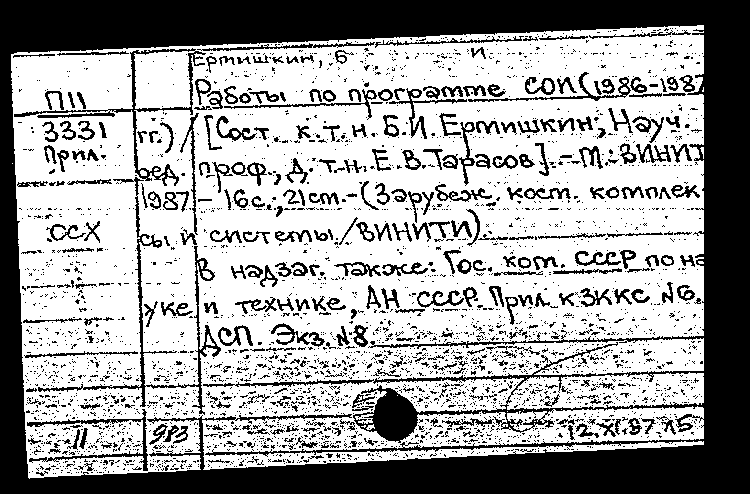 Ермишкин, Б И
П11 Работы по программе СОИ (1986-1987
3331 гг.) / [Сост. к.т.н. Б.И. Ермишкин; Науч.
Прил. ред. проф., д.т.н. Е.В. Тарасов]. - М.: ВИНИТ
1987 - 16 с.; 21 cm. - (Зарубеж. косм. комплек-
ОСХ сы и системы / ВИНИТИ).
В надзаг. также: Гос. ком. СССР по на
уке и технике, АН СССР. Прил. к ЗККС №6.
ДСП. Экз. №8.
11 983 12.XI.87